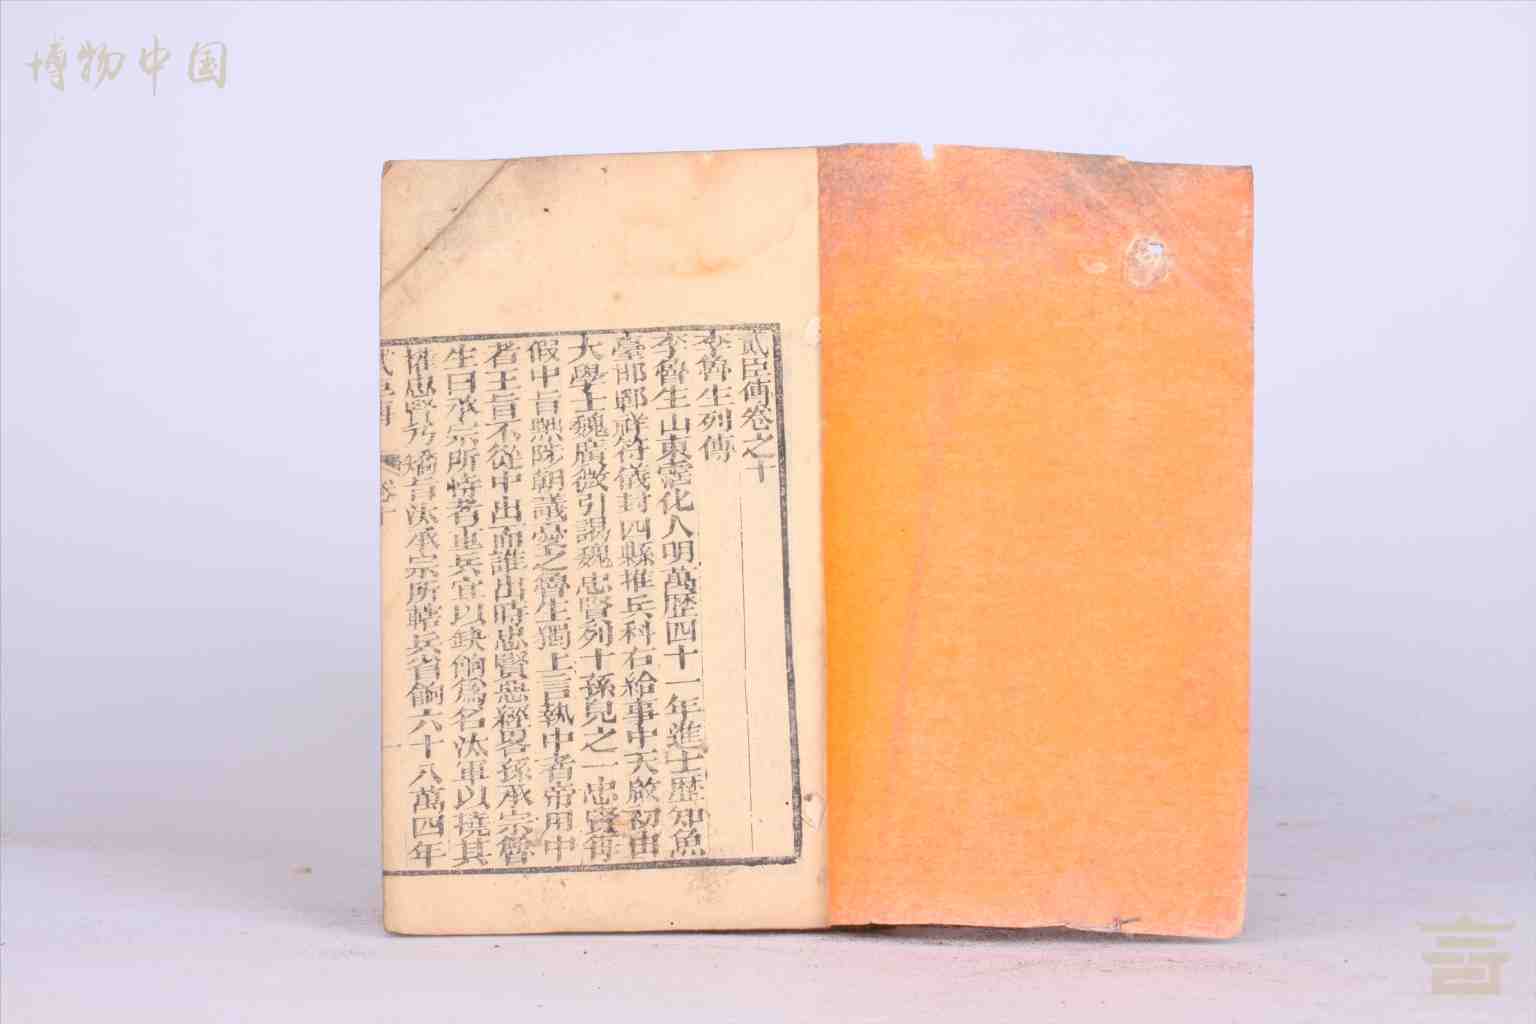 博物中国
貳臣傳卷之十
李魯生列傳
李魯生山東霑化人明萬歷四十一年進士歷知魚
臺邯鄲祥符儀封四縣推兵科右給事中天啟初由
大學士魏廣微引謁魏忠賢列十孫兒之一忠賢每
假中旨黜陟朝議憂之魯生獨上言執中者帝用中
者王旨不從中出而誰出時忠賢惡經畧孫承宗魯
生曰承宗所恃者重兵宜以缺餉爲名汰軍以撓其
權忠賢乃矯旨汰承宗所轄兵省餉六十八萬四年
貳臣傳 卷十 一